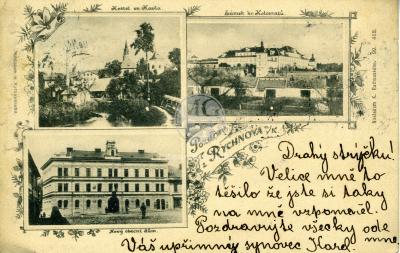 Kostel sv. Havla.
Zámek hr. Kolovratů.
Pozdrav
z RYCHNOVA n/K.
Nový obecní dům.
Drahý strýčku!
Velice mne to
těšilo že jste si taky
na mne vzpoměl.
Pozdravujte všecky ode
mne.
Váš upřímný synovec Karel.